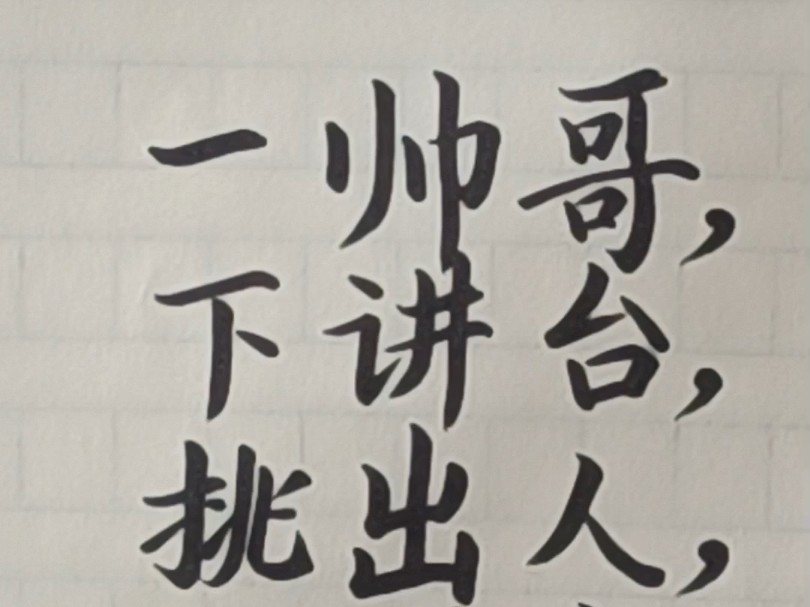 一帅哥，
下讲台，
挑出人，